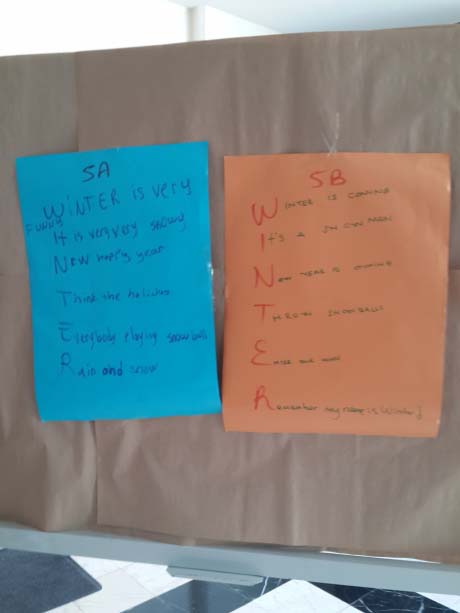 5A
WiNTER is very
FUNNY
It is very very snowy
New happy year
Think the holidays
Everybody playing snow balls
Rain and snow
5B
WINTER IS COMING
IT'S A SNOWMAN
NEW YEAR IS COMING
THROW SNOWBALLS
E
Remember my name is Winter